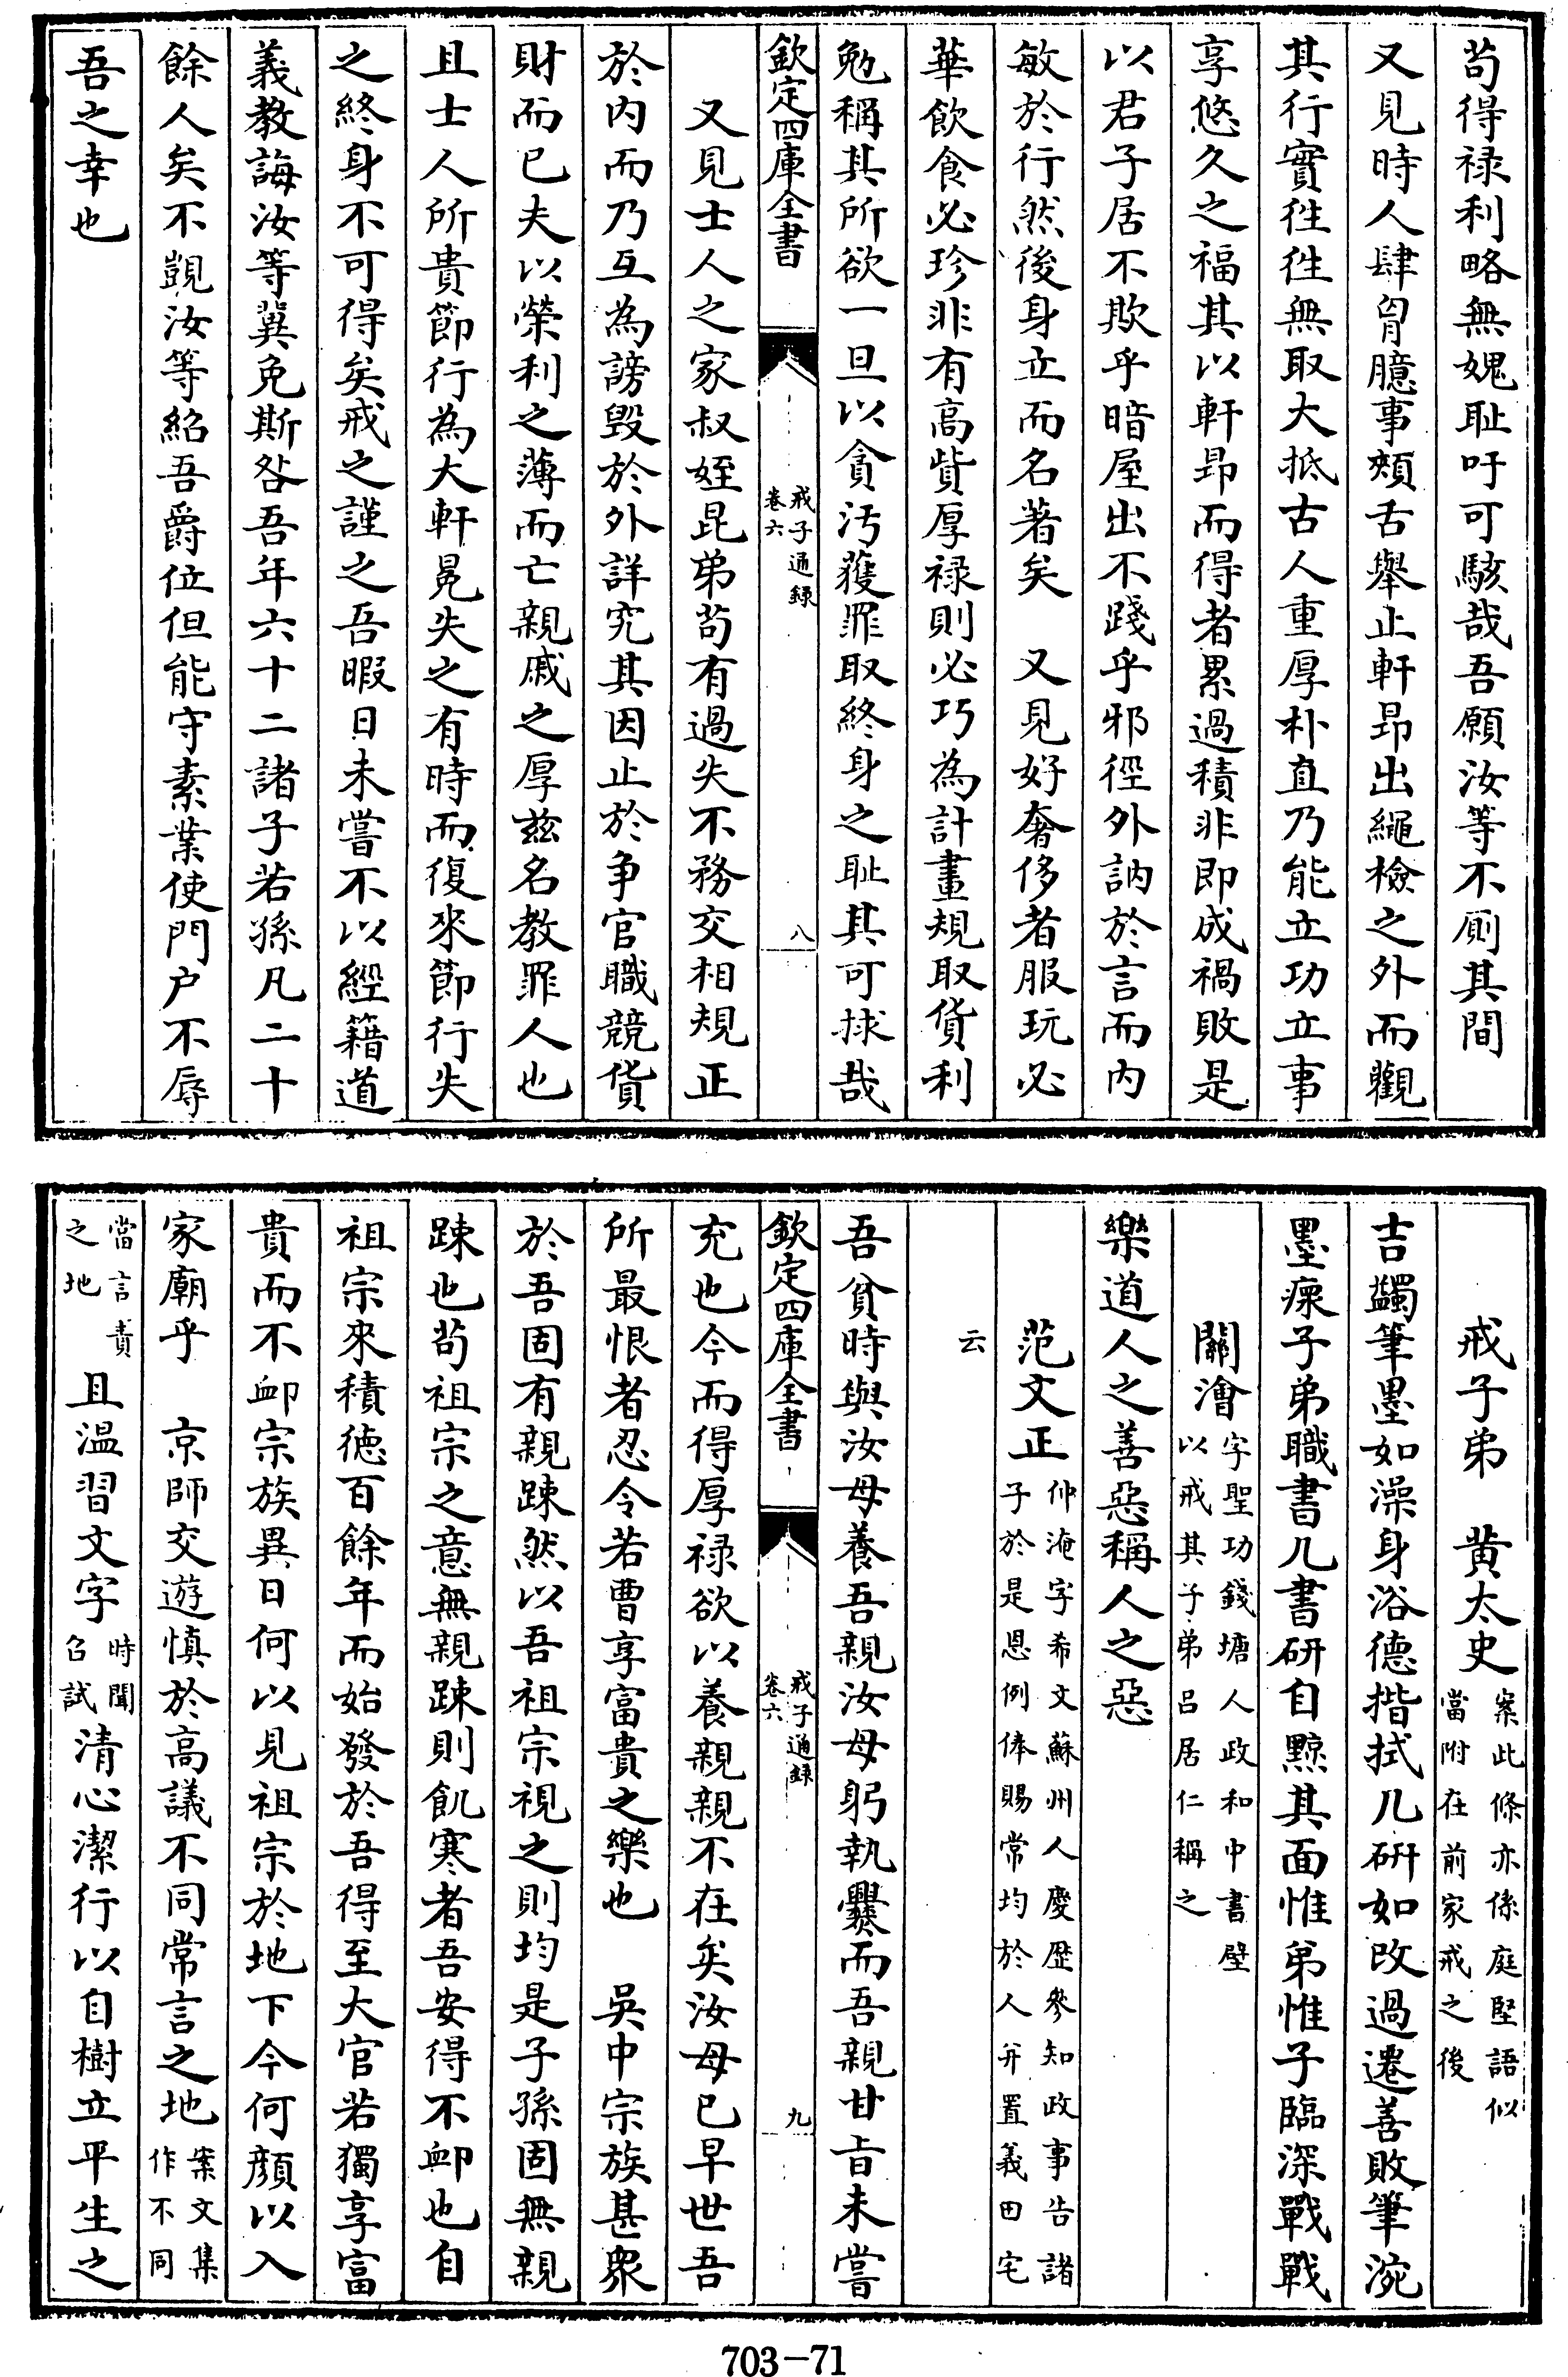 苟得禄利略無媿耻吁可駭哉吾願汝等不厠其間
又見時人肆胷臆事頰舌舉止軒昻出繩檢之外而觀
其行實徃徃無取大抵古人重厚朴直乃能立功立事
享悠久之福其以軒昻而得者累過積非即成禍敗是
以君子居不欺乎暗屋出不踐乎邪徑外訥於言而内
敏於行然後身立而名著矣　又見好奢侈者服玩必
華飲食必珍非有高貲厚禄則必巧為計畫規取貨利
勉稱其所欲一旦以貪汚獲罪取終身之耻其可捄哉
欽定四庫全書
戒子通録
卷六
八
又見士人之家叔姪昆弟苟有過失不務交相規正
於内而乃互為謗毁於外詳究其因止於争官職競貨
財而已夫以榮利之薄而亡親戚之厚兹名教罪人也
且士人所貴節行為大軒冕失之有時而復來節行失
之終身不可得矣戒之謹之吾暇日未嘗不以經籍道
義教誨汝等冀免斯咎吾年六十二諸子若孫凡二十
餘人矣不覬汝等紹吾爵位但能守素業使門户不辱
吾之幸也
戒子弟　黄太史
案此條亦係庭堅語似
當附在前家戒之後
吉蠲筆墨如澡身浴德揩拭几研如改過遷善敗筆涴
墨瘝子弟職書几書研自黥其面惟弟惟子臨深戰戰
關澮
字聖功錢塘人政和中書壁
以戒其子弟吕居仁稱之
樂道人之善惡稱人之惡
范文正
仲淹字希文蘇州人慶歴參知政事告諸
子於是恩例俸賜常均於人并置義田宅
云
吾貧時與汝母養吾親汝母躬執爨而吾親甘㫖未嘗
欽定四庫全書
戒子通録
卷六
九
充也今而得厚禄欲以養親親不在矣汝母已早世吾
所最恨者忍令若曹享富貴之樂也　吳中宗族甚衆
於吾固有親踈然以吾祖宗視之則均是子孫固無親
踈也苟祖宗之意無親踈則飢寒者吾安得不䘏也自
祖宗來積德百餘年而始發於吾得至大官若獨享富
貴而不䘏宗族異日何以見祖宗於地下今何顔以入
家廟乎　京師交遊慎於高議不同常言之地
案文集
作不同
當言責
之地
且温習文字
時聞
召試
清心潔行以自樹立平生之
703-71